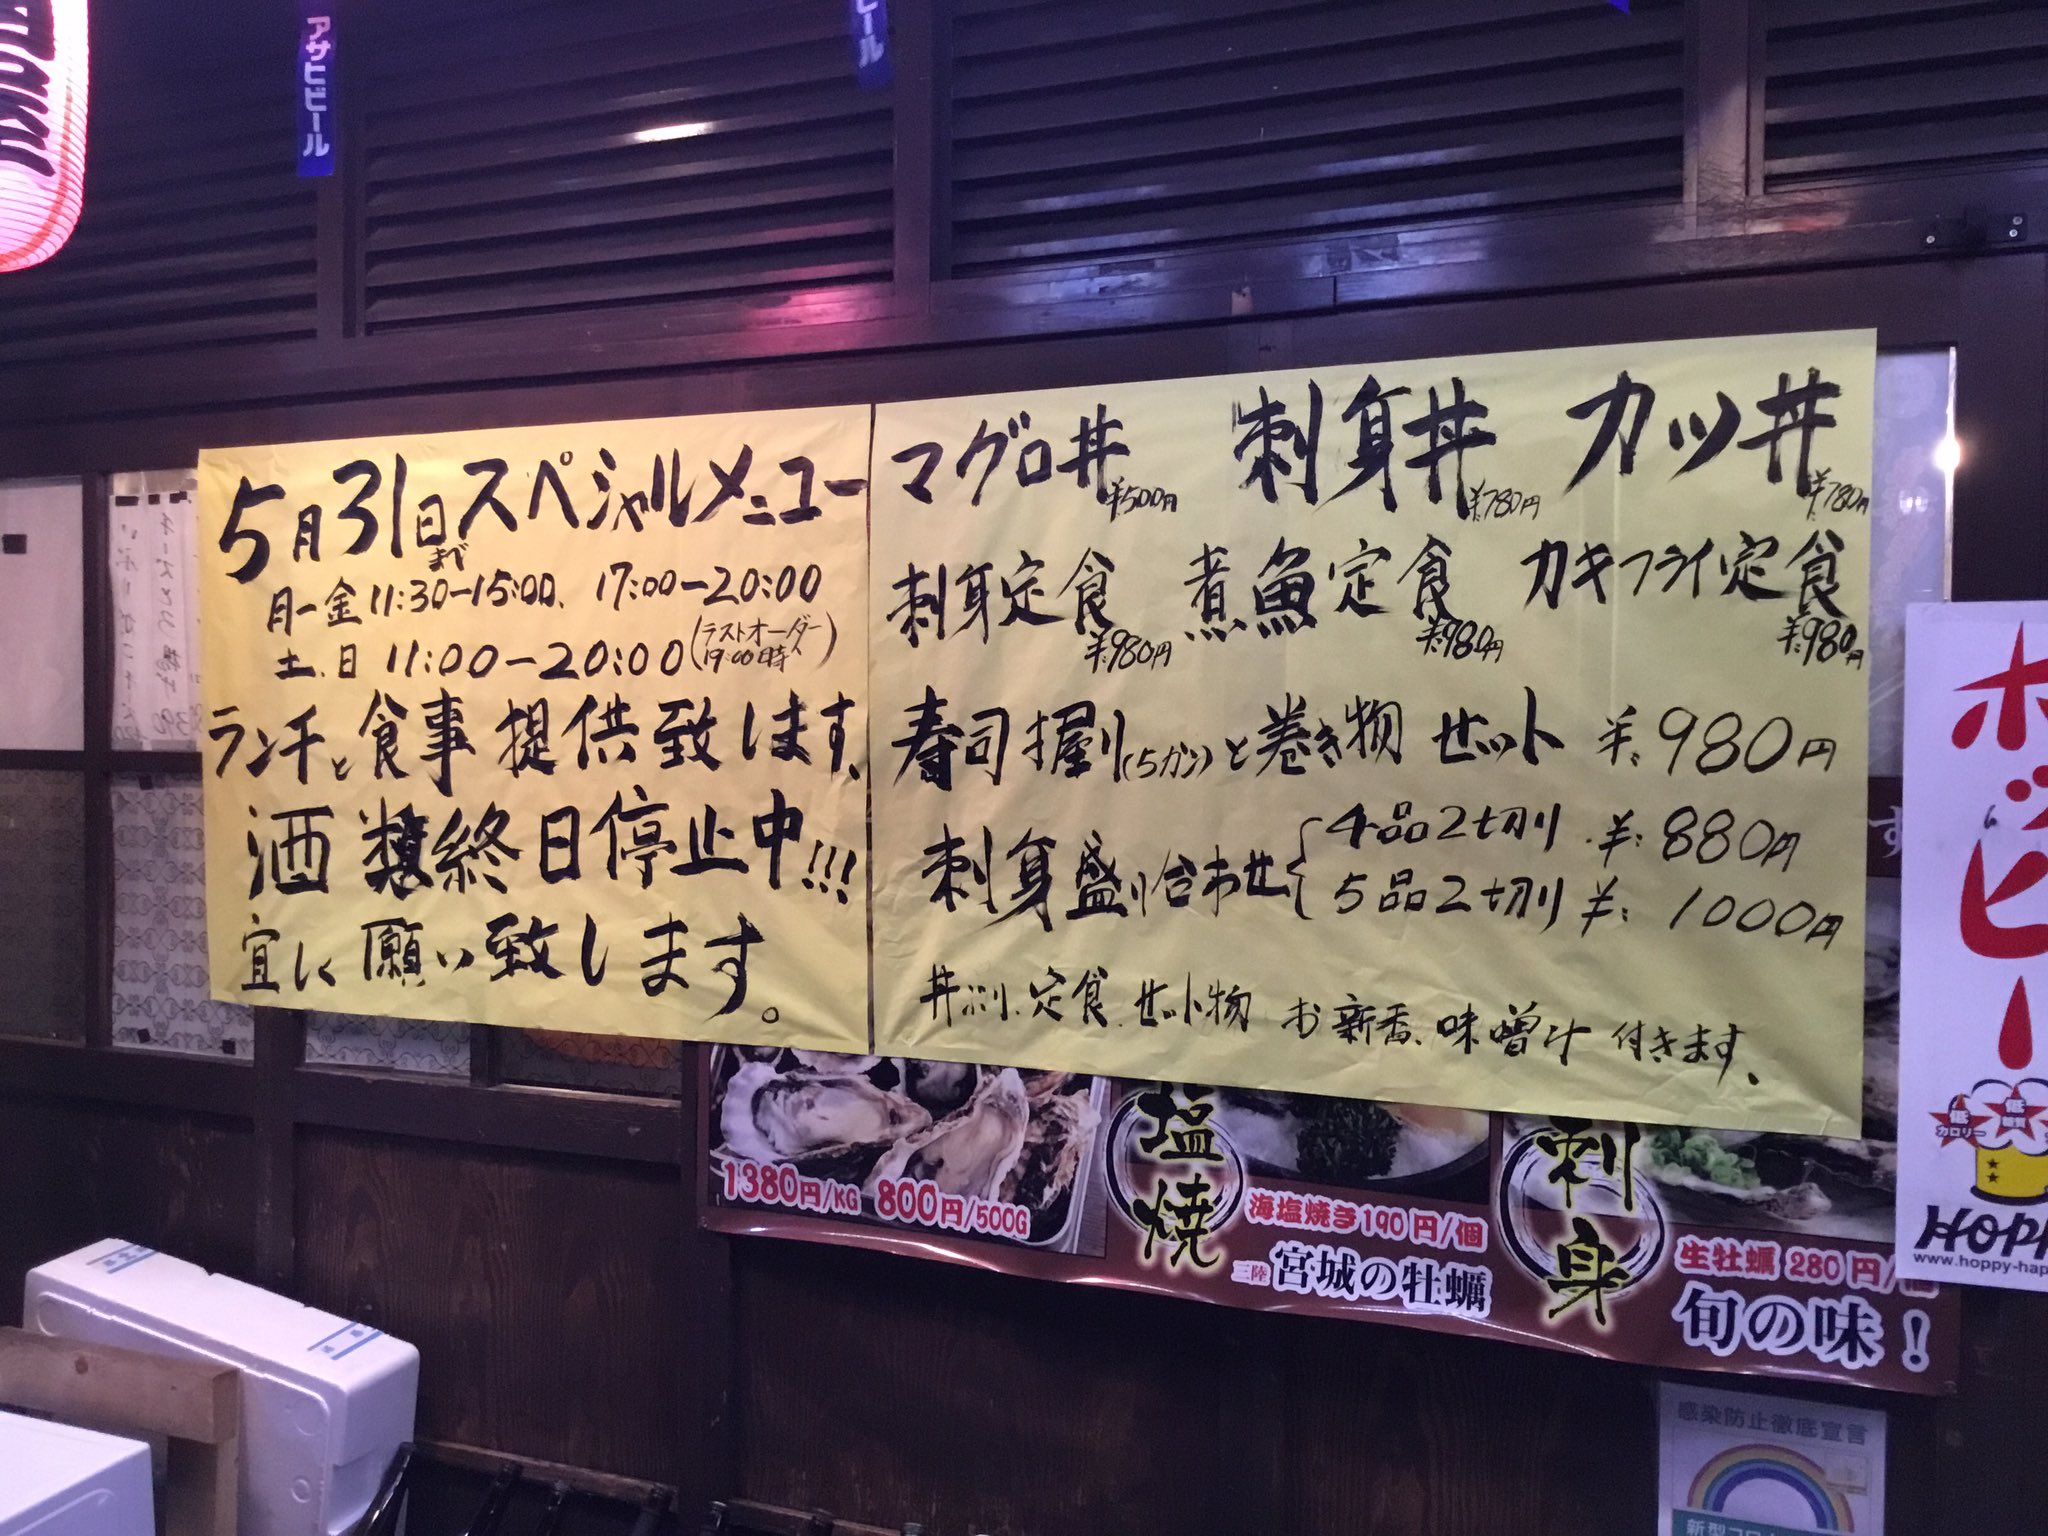 アサヒビール
ビール
5月31日まで スペシャルメニュー
月ー金 11:30-15:00、17:00-20:00
土、日 11:00-20:00(ラストオーダー19:00時)
ランチと食事提供致します、
酒類終日停止中!!!
宜しく願い致します。
マグロ丼 ¥500円 刺身丼 ¥780円 カツ丼 ¥780円
刺身定食 ¥980円 煮魚定食 ¥980円 カキフライ定食 ¥980円
寿司握り(5カン)と巻き物セット ¥980円
刺身盛り合わせ
4品2切り ¥880円
5品2切り ¥1000円
丼ぶり、定食、セット物 お新香、味噌汁付きます、
1380円/KG 800円/500G
塩焼
海塩焼き190円/個
三陸 宮城の牡蠣
刺身
生牡蠣 280円/個
旬の味!
ホッピー
低カロリー
低糖質
HOPP
www.hoppy-hap
感染防止徹底宣言
新型コロ